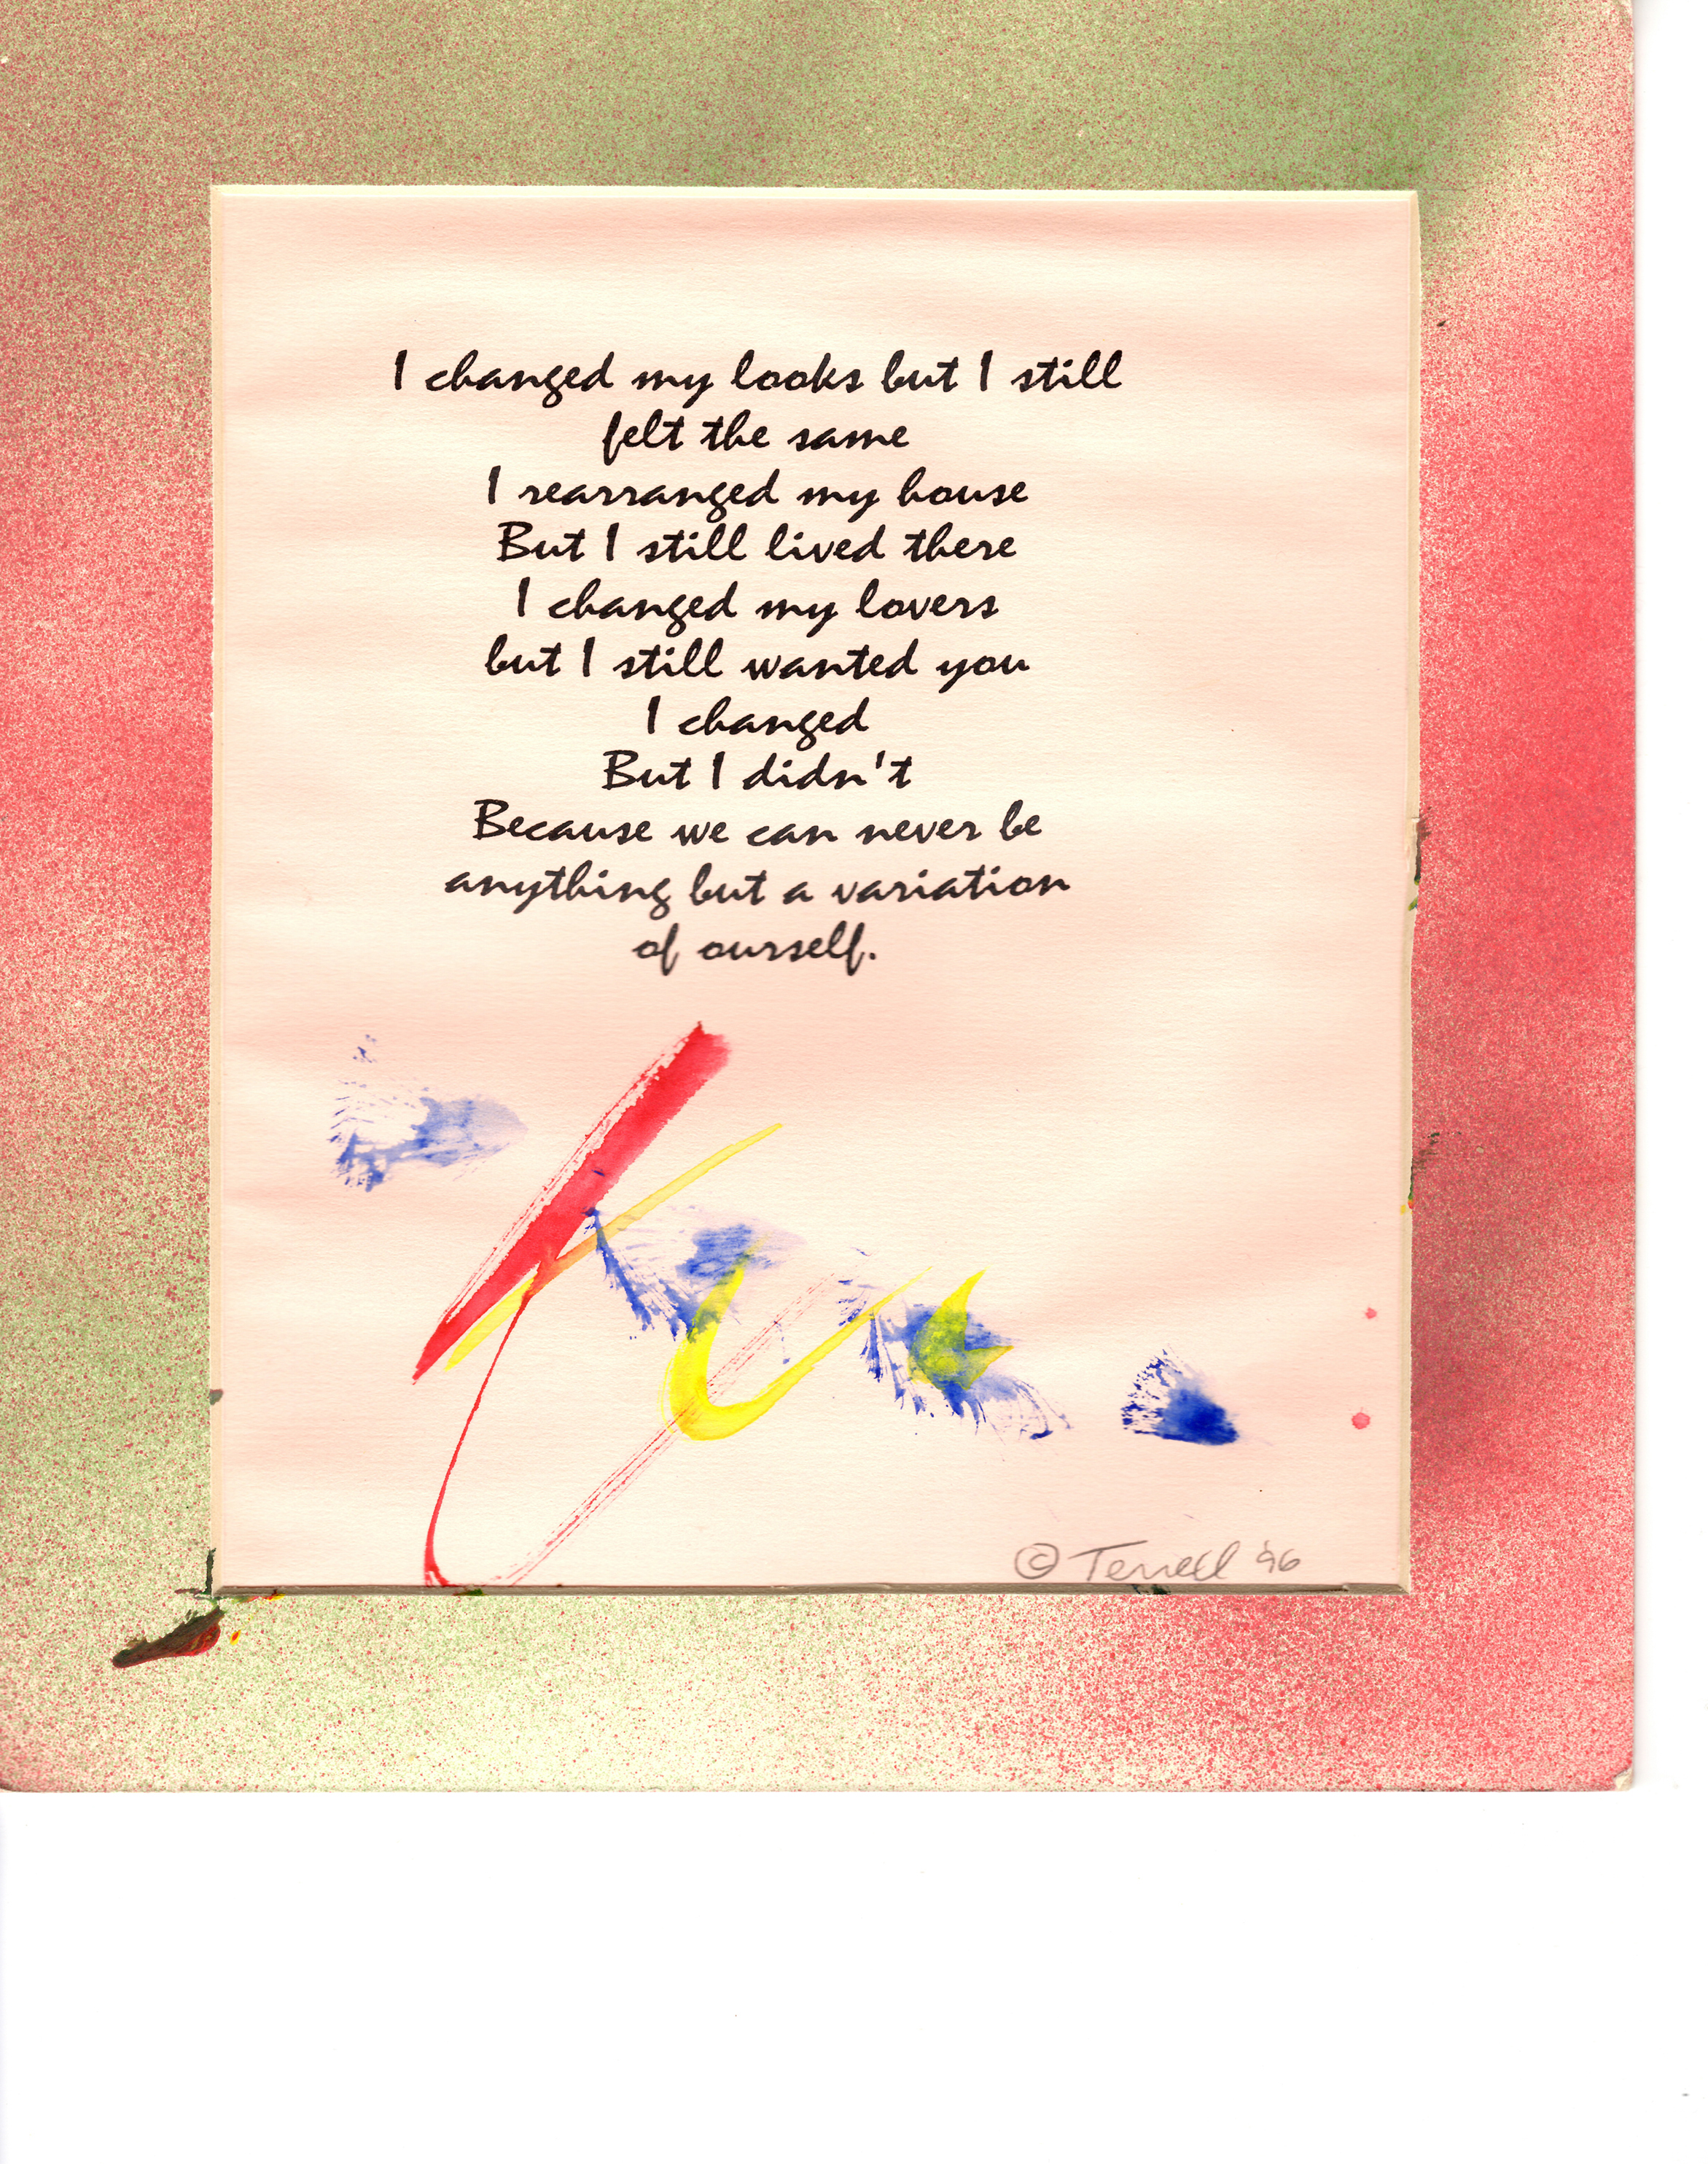 I changed my looks but I still
felt the same
I rearranged my house
But I still lived there
I changed my lovers
but I still wanted you
I changed
But I didn't
Because we can never be
anything but a variation
of ourself.
© Terrell '96